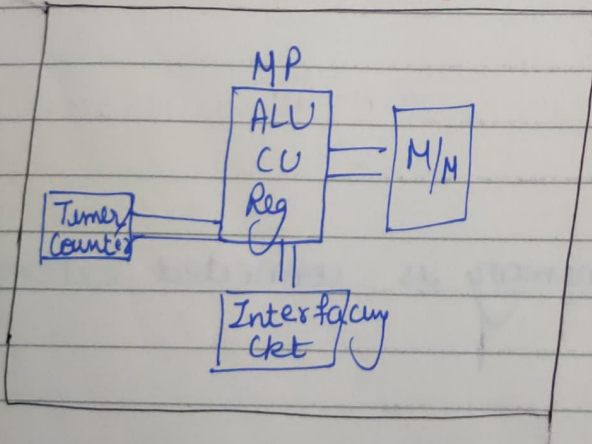 MP
ALU
CU
Reg
M/M
Timer/
Counter
Interfacing
Ckt